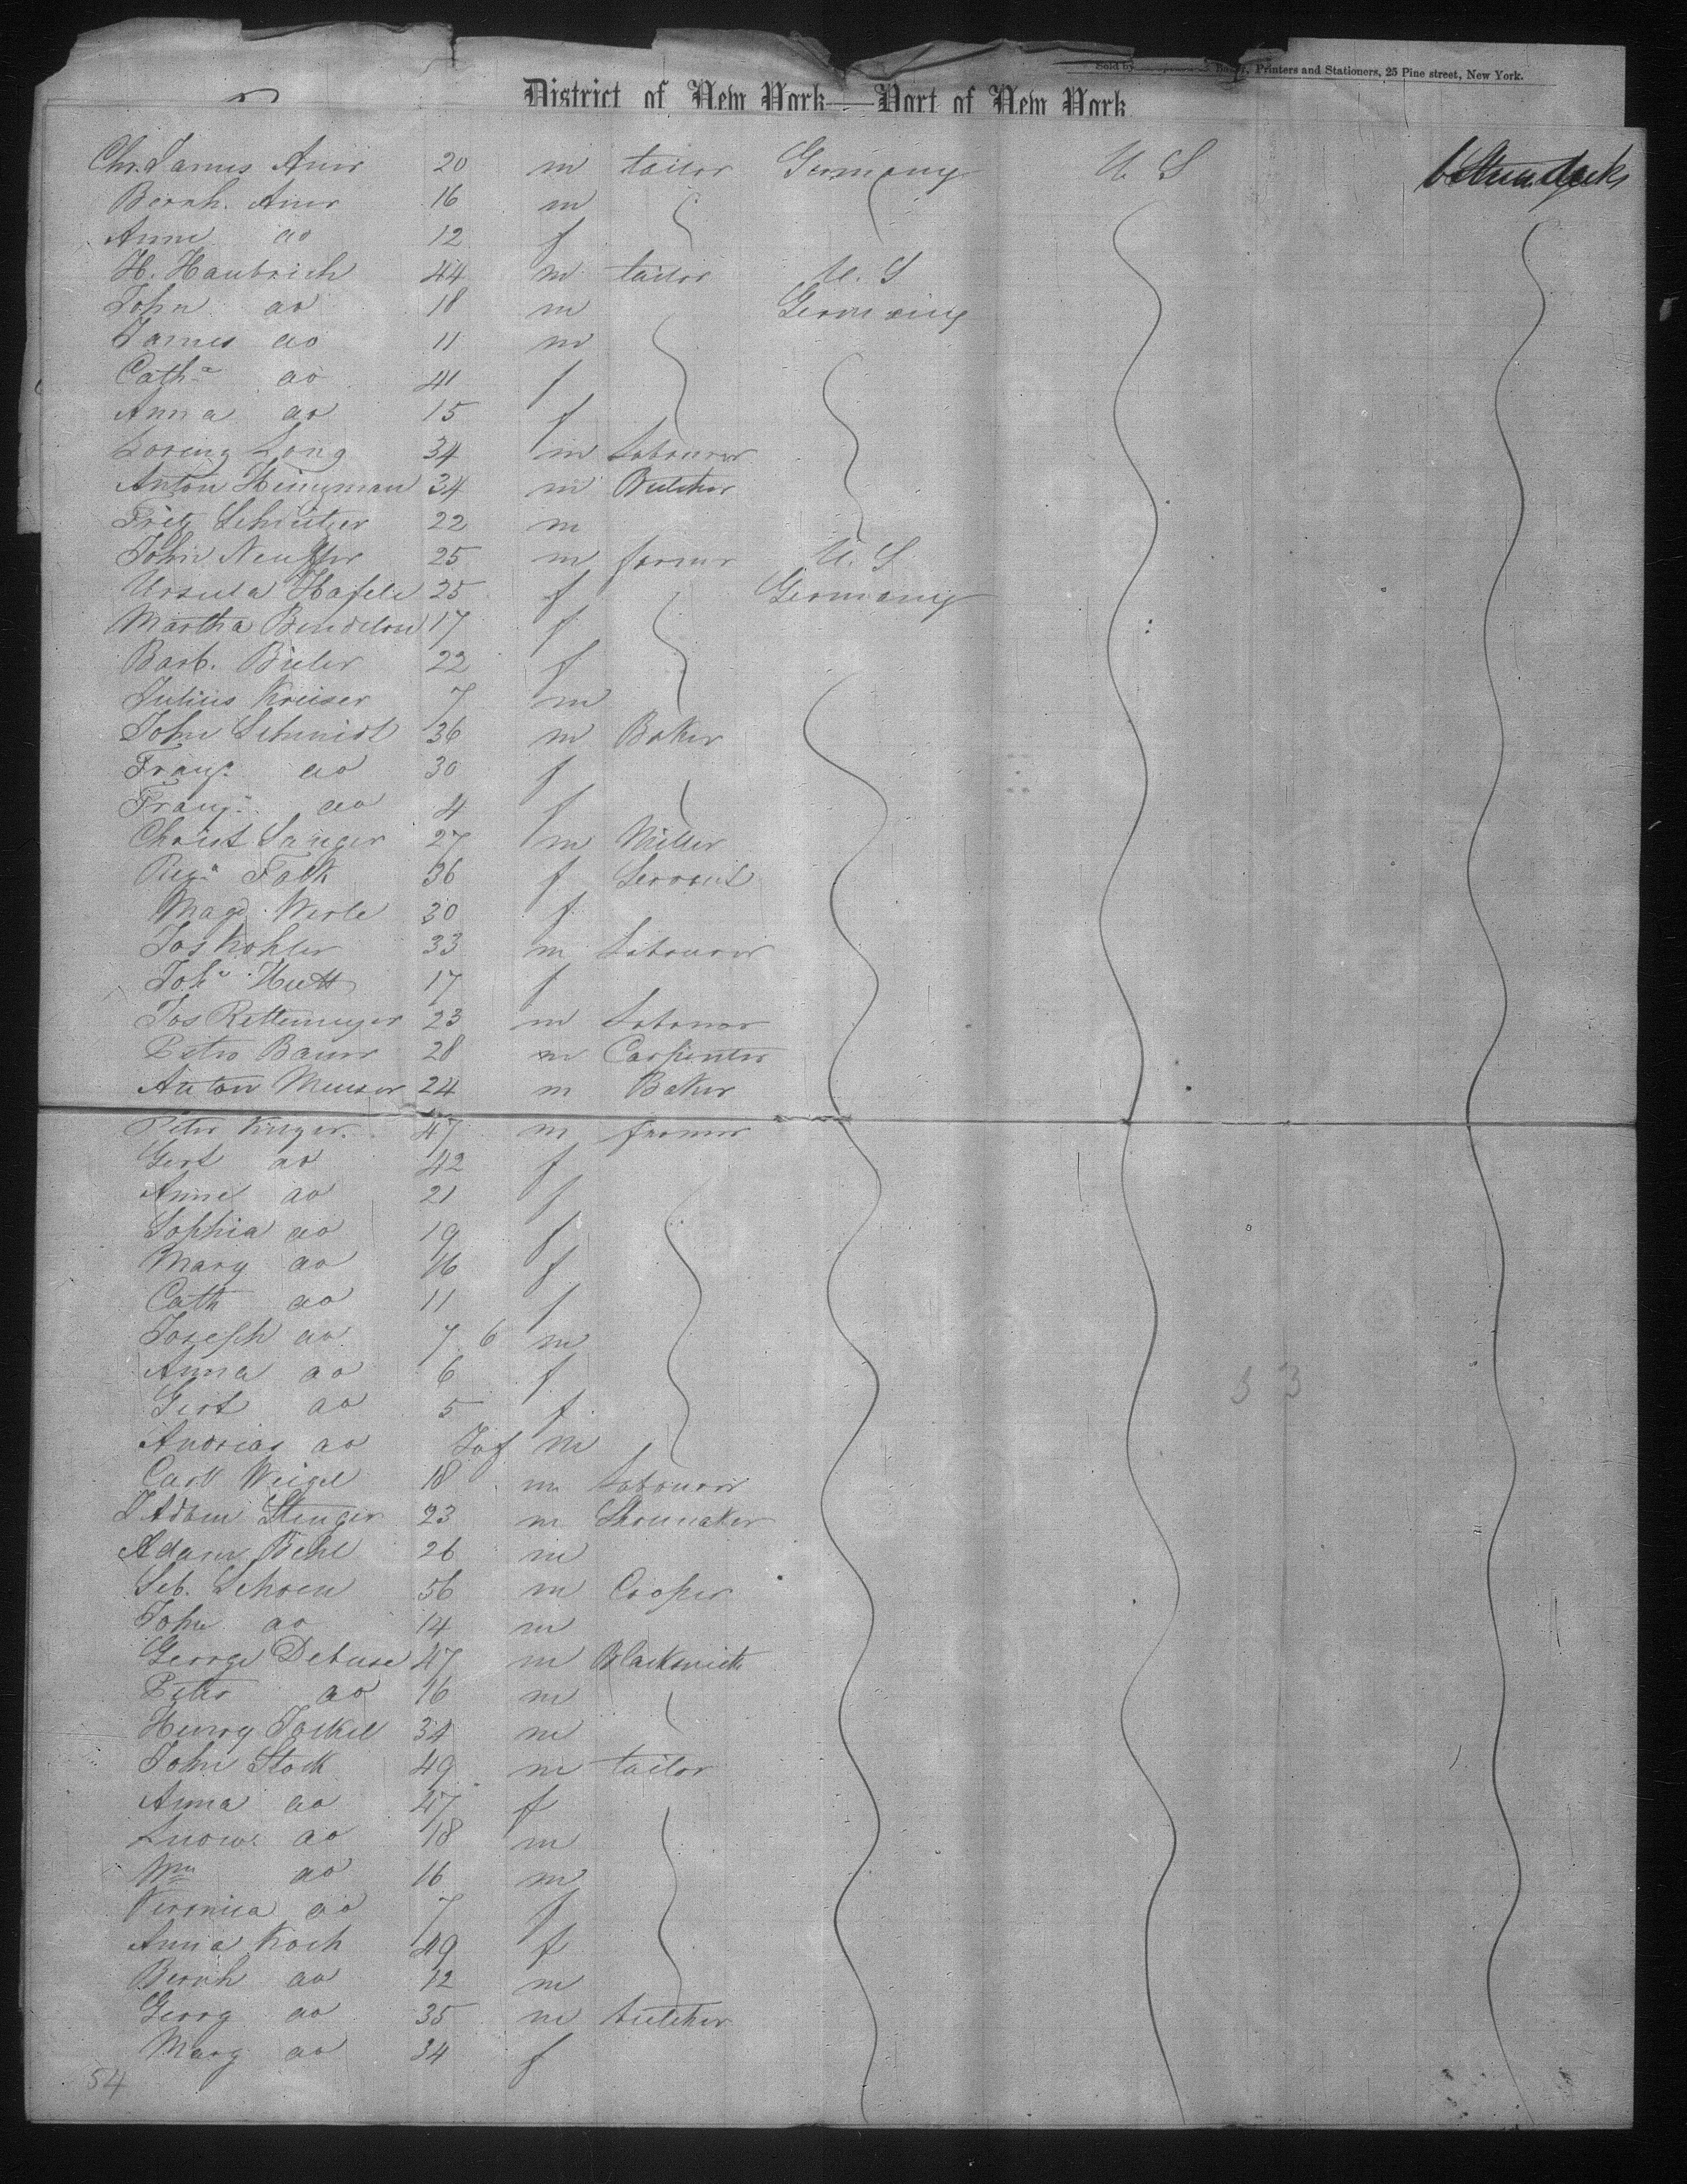 Sold by Baker, Printers and Stationers, 25 Pine street, New York.
District of New York—Port of New York
Chr. James 20 m tailor Germany U S
Bernh. 16 m
Anne do 12 f
H. Haubrich 44 m tailor U. S
John do 18 m Germany
James do 11 m
Catha do 41 f
Anna do 15 f
Long 34 m Labourer
Anton 34 m Butcher
Fritz 22 m
John Neuffer 25 m farmer U. S
Ursula Hafele 25 f Germany
Martha 17 f
Barb. Bieler 22 f
Julius Kreiser 7 m
John Schmidt 36 m Baker
Franza do 30 f
Franza do 4 f
Christ Sanger 27 m Miller
Rega Falk 36 f Servant
Magd. Werle 30 f
Jos Kohler 33 m Labourer
Joha Hutt 17 f
Jos Rettemeyer 23 m Labourer
Peter Bauer 28 m Carpenter
Anton Meuser 24 m Baker
Peter 47 m farmer
Gert do 42 f
Anne do 21 f
Sophia do 19 f
Mary do 16 f
Cath do 11 f
Joseph do 7 6 m
Anna do 6 f
Gert do 5 f
Andreas do Inf m
Carl Weigel 18 m Labourer
J Adam Stenger 23 m Shoemaker
Adam Behl 26 m
Seb. Schoen 56 m Cooper
John do 14 m
George Debuse 47 m Blacksmith
Peter do 16 m
Henry Jockel 34 m
John Stock 49 m tailor
Anna do 47 f
do 18 m
Wm do 16 m
Veronica do 7 f
Anna Koch 49 f
Bernh do 12 m
Georg do 35 m butcher
Marg do 34 f
54
33